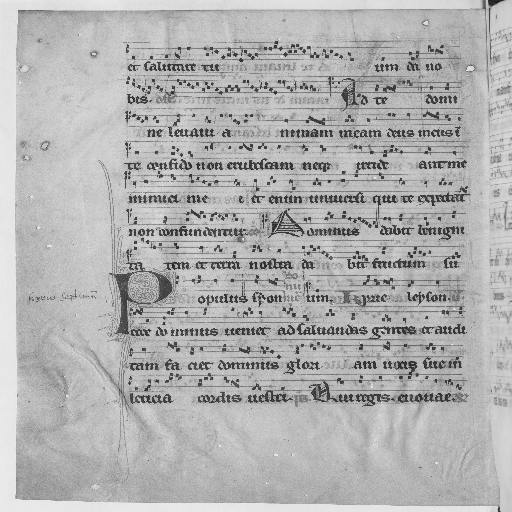 et salutare tu um da no
bis. Ad te domi
ne levavi a nimam meam deus meus i
te confido non erubescam neqz irride ant me
inimici me i et enim universi qui te expectant
non confundentur. Dominus dabit benigni
ta tem et terra nostra da bit fructum su
um. Populus syon
ecce dominus veniet ad salvandas gentes et audi
tam fa ciet dominus glori am vocis sue in
leticia cordis vestri. Qui regis. euouae.